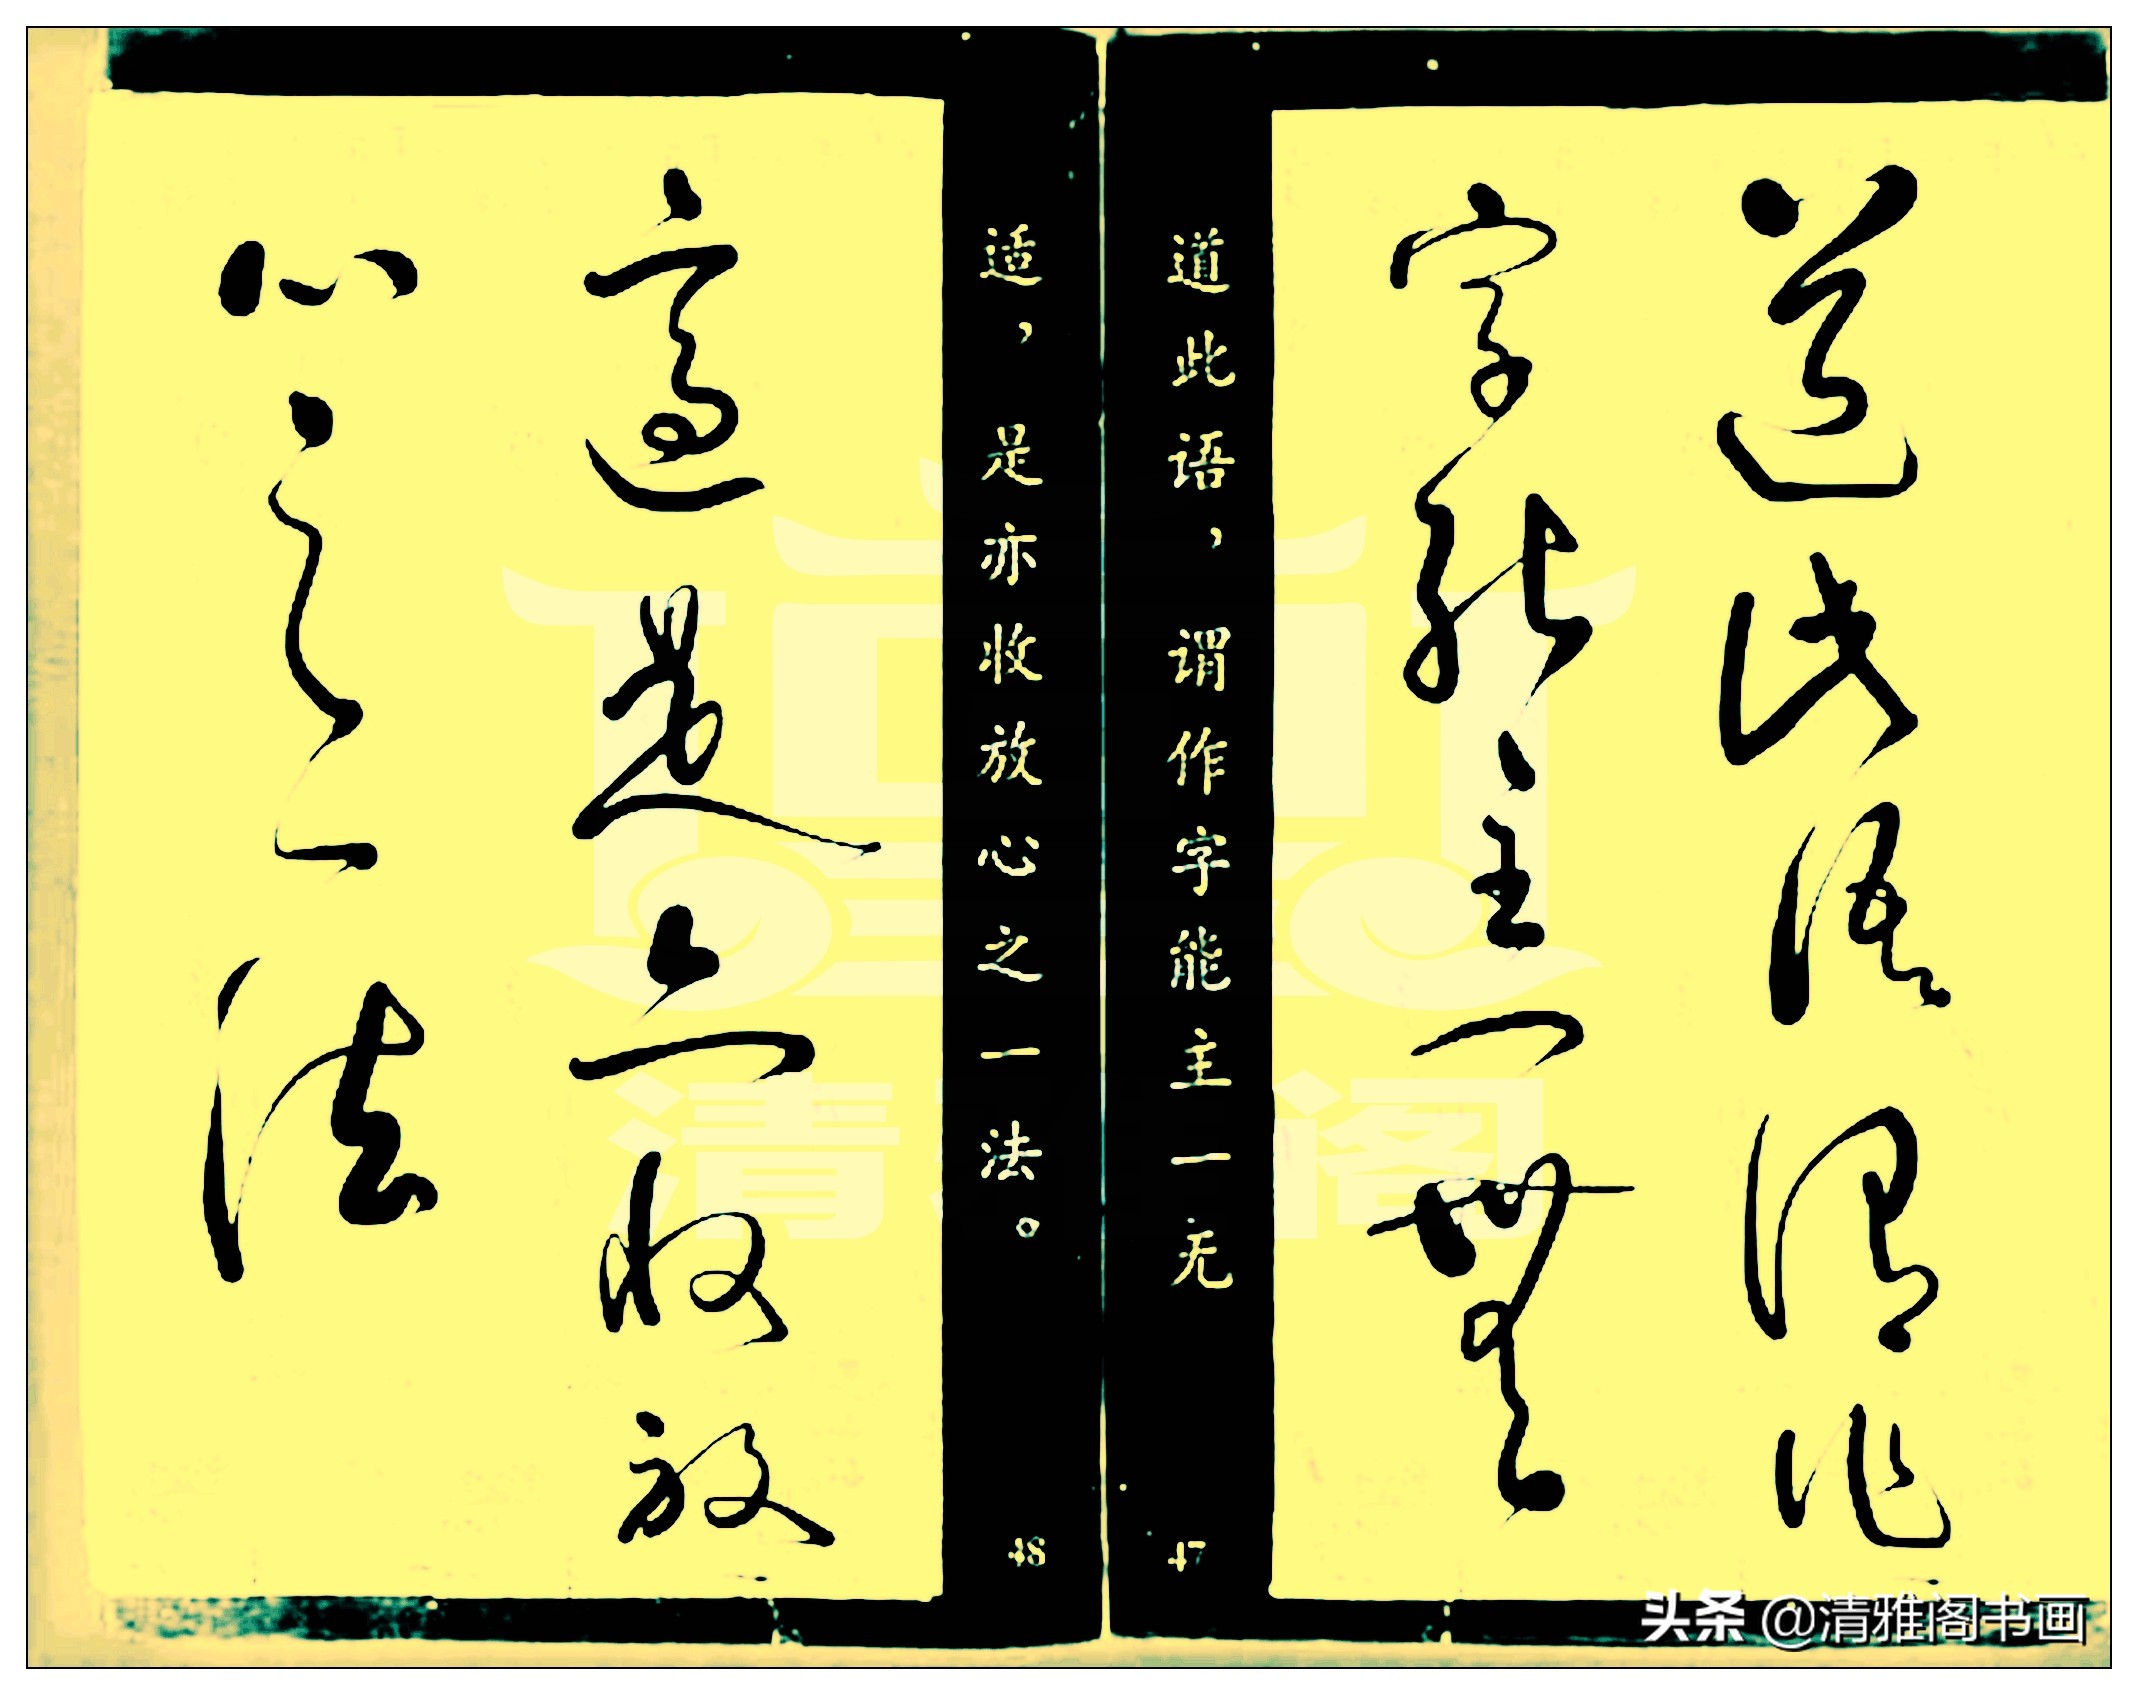 道此語謂作
字能主一無
道此语，谓作字能主一无
47
适，是亦收放心之一法。
48
適是亦收放
心之一法
清 阁
头条 @清雅阁书画